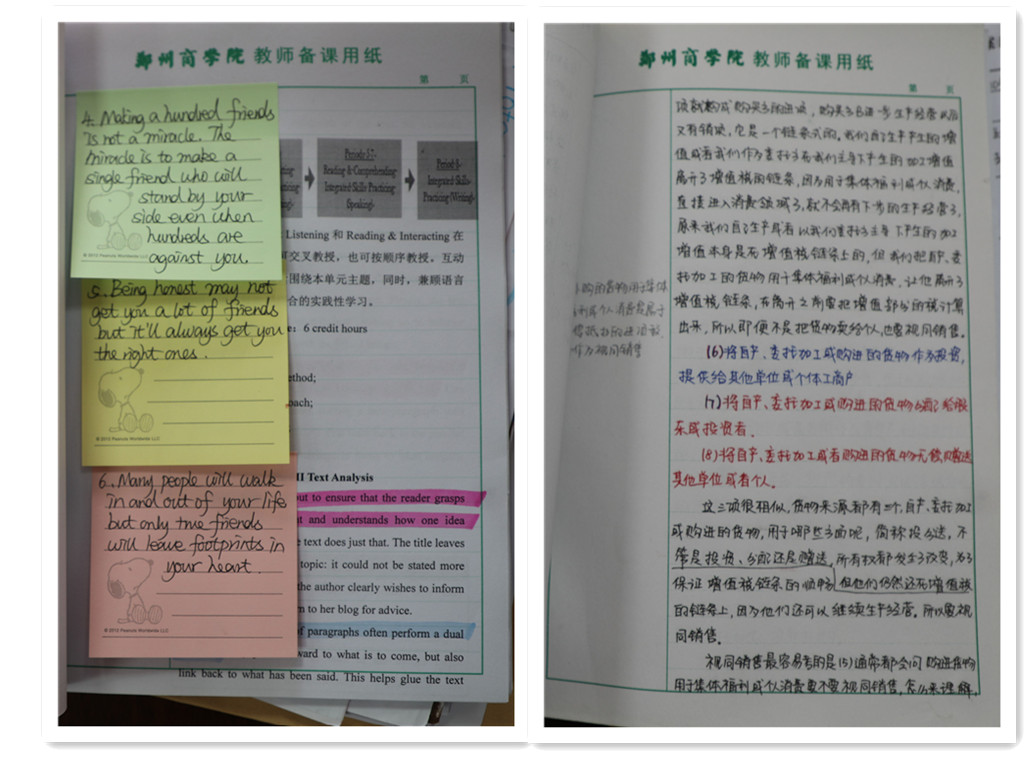 郑州商学院 教师备课用纸
第 页
4. Making a hundred friends
is not a miracle. The
miracle is to make a
single friend who will
stand by your
side even when
hundreds are
against you.
© 2010 Peanuts Worldwide LLC
5. Being honest may not
get you a lot of friends
but it'll always get you
the right ones.
© 2010 Peanuts Worldwide LLC
6. Many people will walk
in and out of your life
but only true friends
will leave footprints in
your heart.
© 2010 Peanuts Worldwide LLC
Reading & Comprehending
Integrated Skills Practicing
Speaking
Integrated Skills
Practicing (Writing)
Listening 和 Reading & Interacting 在
可交叉教授,也可按顺序教授,互动
围绕本单元主题,同时,兼顾语言
合的实践性学习。
6 credit hours
ethod;
oach;
II Text Analysis
out to ensure that the reader grasps
and understands how one idea
text does just that. The title leaves
topic: it could not be stated more
the author clearly wishes to inform
n to her blog for advice.
of paragraphs often perform a dual
ward to what is to come, but also
link back to what has been said. This helps glue the text
郑州商学院 教师备课用纸
第 页
又有销项,它是一个链条式的,我们自己生产产生的增
值或者我们作为委托方在我们主导下产生的加工增值
离开了增值税的链条,因为用于集体福利或个人消费,
直接进入消费领域了,就不会再有下步的生产经营了,
原来我们自己生产或者以我们委托方主导下产生的加工
增值本身是在增值税链条上的,但我们把自产、委
托加工的货物用于集体福利或个人消费,让他离开了
增值税链条,在离开之前需把增值部分的税计算
出来,所以即便不是把货物卖给个人,也要视同销售。
(6)将自产、委托加工或购进的货物作为投资,
提供给其他单位或个体工商户
(7)将自产、委托加工或购进的货物分配给股
东或投资者。
(8)将自产、委托加工或者购进的货物无偿赠送
其他单位或者个人。
这三项很相似,货物来源都有三个,自产、委托加工
或购进的货物,用于哪些方面呢,简称投分送,不
管是投资、分配还是赠送,所有权都发生了改变,为了
保证增值税链条的顺畅,但他们仍然还在增值税
的链条上,因为他们还可以继续生产经营。所以要视
同销售。
视同销售最容易考的是(5)通常都会问购进货物
用于集体福利或个人消费要不要视同销售,怎么来理解,